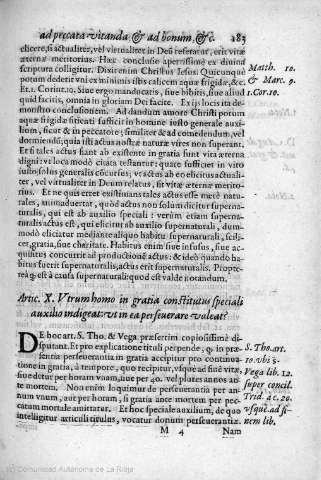 ad peccata vitanda & ad bonum, &c. 183
elicere, si actualiter, vel virtualiter in Deū referatur, erit vitæ
æternæ meritorius. Hæc conclusio apertissimè ex diuina
scriptura colligitur. Dixit enim Christus Iesus. Quicunque
potum dederit vni ex minimis istis calicem aquæ frigidæ, &c.
Et.1. Corint.10. Siue ergo manducatis, siue bibitis, siue aliud
quid facitis, omnia in gloriam Dei facite. Ex ijs locis ita de-
monstro conclusionem. Ad dandum amore Christi potum
aquæ frigidæ sitienti sufficit in homine iusto generale auxi-
lium, sicut & in peccatore; similiter & ad comedendum, vel
dormiendū; quia isti actus nostræ naturæ vires non superant.
Et si tales actus fiant ab existente in gratia sunt vita æterna
digni: vt loca modò citata testantur: quare sufficiet in viro
iusto solus generalis cōcursus; vt actus ab eo elicitus actuali-
ter, vel virtualiter in Deum relatus, sit vitæ æternæ merito-
rius. Et ne quis erret existimans tales actus esse merè natu-
rales, animaduertat, quòd actus non solum dicitur superna-
turalis, qui est ab auxilio speciali: verùm etiam superna-
turalis actus est, qui elicitur ab auxilio supernaturali, dum-
modò eliciatur mediante aliquo habitu supernaturali, scili-
cet, gratia, siue charitate. Habitus enim siue infusus, siue ac-
quisitus concurrit ad productionē actus: & ideò quando ha-
bitus fuerit supernaturalis, actus erit supernaturalis. Propte-
rea q̄ est à causa supernaturali: quod est valde notandum.
Matth. 10.
& Marc. 9.
1. Cor. 10.
Artic. X. Vtrum homo in gratia constitutus speciali
auxilio indigeat: vt in ea perseuerare valeat?
DE hoc art. S. Tho. & Vega præsertim copiosissimè di-
sputant. Et pro explicatione tituli perpende, q̄ in præ-
sentia perseuerantia in gratia accipitur pro continua-
tione in gratia, à tempore, quo recipitur, vsque ad finē vitæ,
siue duret per horam vnam, siue per 40. vel plures annos an-
te mortem. Non enim loquimur de perseuerantia per an-
num vnum, aut per horam, si gratia ante mortem per pec-
catum mortale amittatur. Et hoc speciale auxilium, de quo
intelligitur articuli titulus, vocatur donum perseuerantiæ.
S. Tho. art.
10. vbi s.
Vega lib. 12.
super concil.
Trid. à c. 20.
vsque ad fi-
nem lib.
M 4 Nam
(c) Comunidad Autónoma de La Rioja